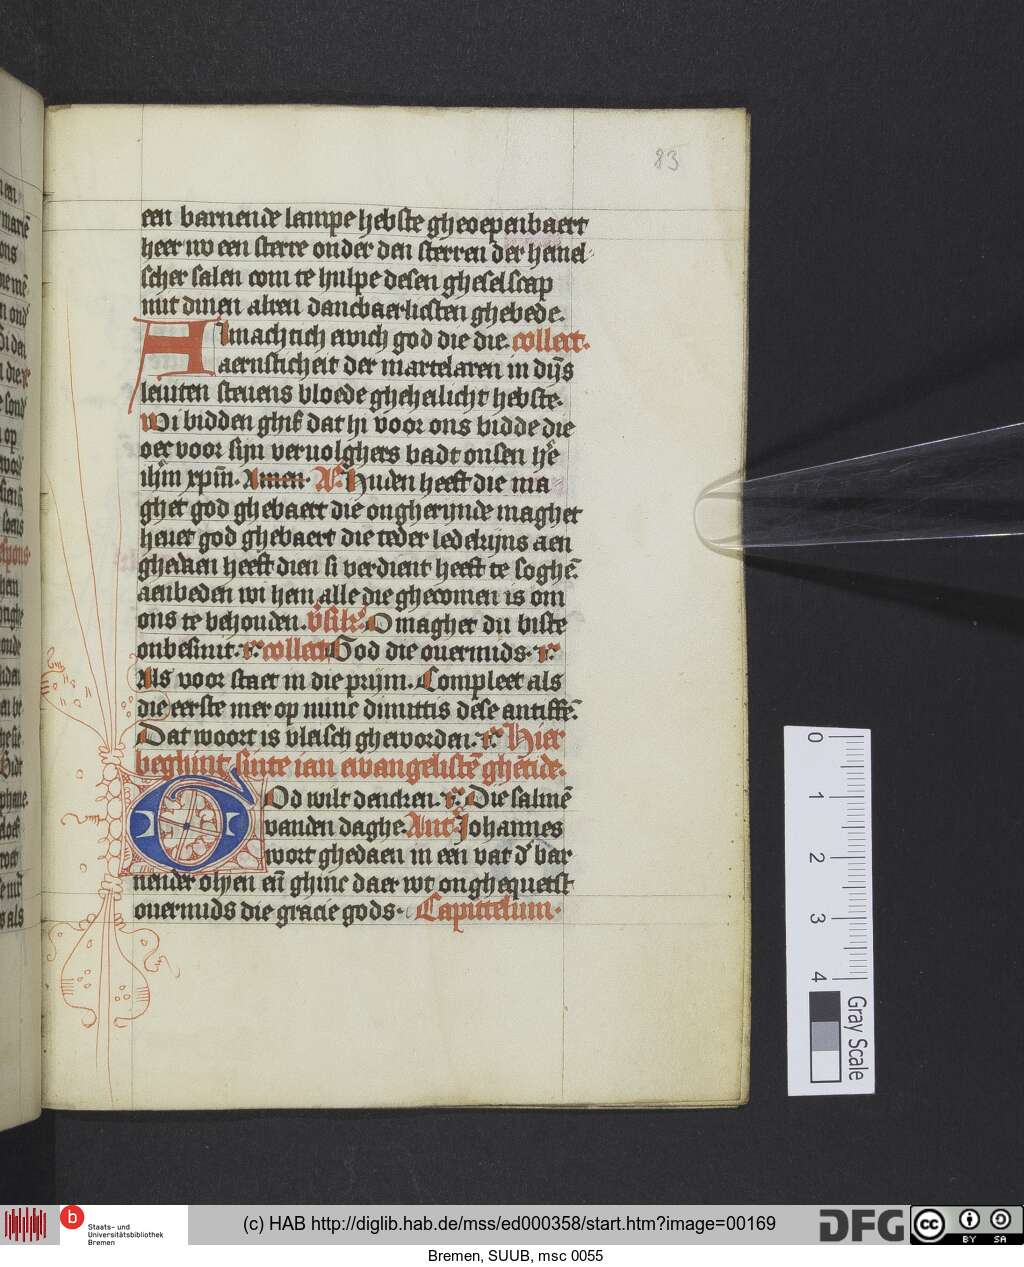 83
een barnende lampe hebste gheoepenbaert
heer nv een sterre onder den sterren der hemel
scher salen com te hulpe desen gheselscap
mit dinen alren dancbaerlicsten ghebede.
Almachtich ewich god die die collect.
aernsticheit der martelaren in dijs
leuiten steuens bloede gheheilicht hebste.
Wi bidden ghif dat hi voor ons bidde die
oec voor sijn veruolghers badt onsen hē
ihm xpm. Amen. Huden heeft die ma
ghet god ghebaert die ongherimde maghet
heuet god ghebaert die teder ledekijns aen
ghedaen heeft dien si verdient heeft te soghē
aenbeden wi hem alle die ghecomen is om
ons te behouden. O maghet du biste
onbesmit. collect God die ouermids.
Als voor staet in die prijm. Compleet als
die eerste mer op nunc dimittis dese antiffē
Dat woort is vleisch gheworden. Hier
beghint sinte ian ewangelistē ghetide.
God wilt dencken. Die salmē
vanden daghe. Ant Johannes
wort ghedaen in een vat d' bar
nender olyen eñ ghinc daer wt onghequetst
ouermids die gracie gods. Capittelum.
0
1
2
3
4
Gray Scale
Staats- und
Universitätsbibliothek
Bremen
(c) HAB http://diglib.hab.de/mss/ed000358/start.htm?image=00169
DFG
cc BY SA
Bremen, SUUB, msc 0055